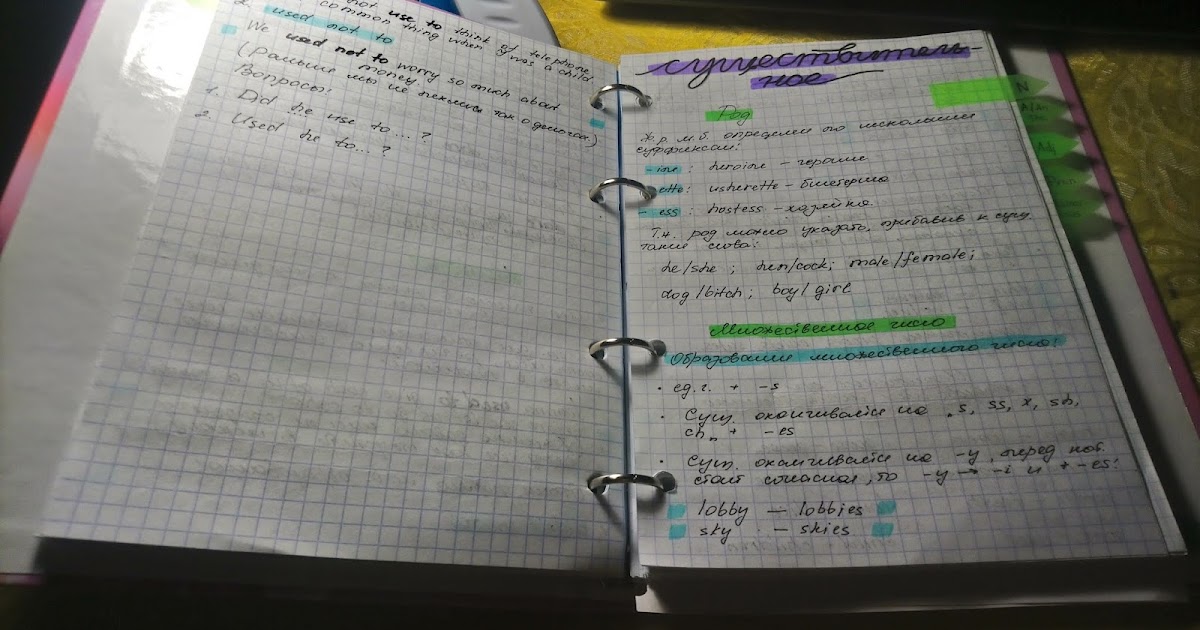 not use to think of telephone
common thing when I was a child
2. used not to
We used not to worry so much about
money
(Раньше мы не пеклись так о деньгах.)
Вопросы:
1. Did he use to... ?
2. Used he to... ?
Существитель-
ное
N
Adj
Род
Ж.р. м.б. определен по нескольким
суффиксам:
- ine : heroine - героиня
ette: usherette - билетерша
- ess : hostess - хозяйка.
Т.ж. род можно указать, прибавив к сущ.
такие слова:
he/she ; hen/cock; male/female;
dog/bitch; boy/girl
Множественное число
Образование множественного числа:
• ед.ч. + -s
• Сущ. оканчивается на s, ss, x, sh,
ch, + -es
• Сущ. оканчивается на -y, перед кот.
стоит согласная, то -y → -i и + -es:
lobby — lobbies
sky — skies